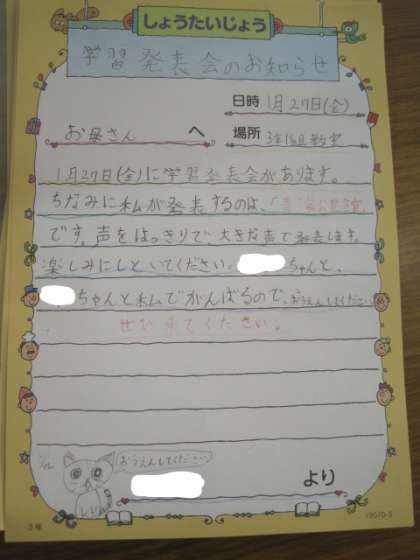 しょうたいじょう
学習発表会のお知らせ
日時 1月27日(金)
お母さん へ 場所 3年1組教室
1月27日(金)に学習発表会があります。
ちなみに私が発表するのは、
です。声をはっきりで、大きな声で発表します。
楽しみにしといてください。 ちゃんと、
ちゃんと私でがんばるので、おうえんしてください
ぜひ来てください。
おうえんしてください
より
3年
19070-3